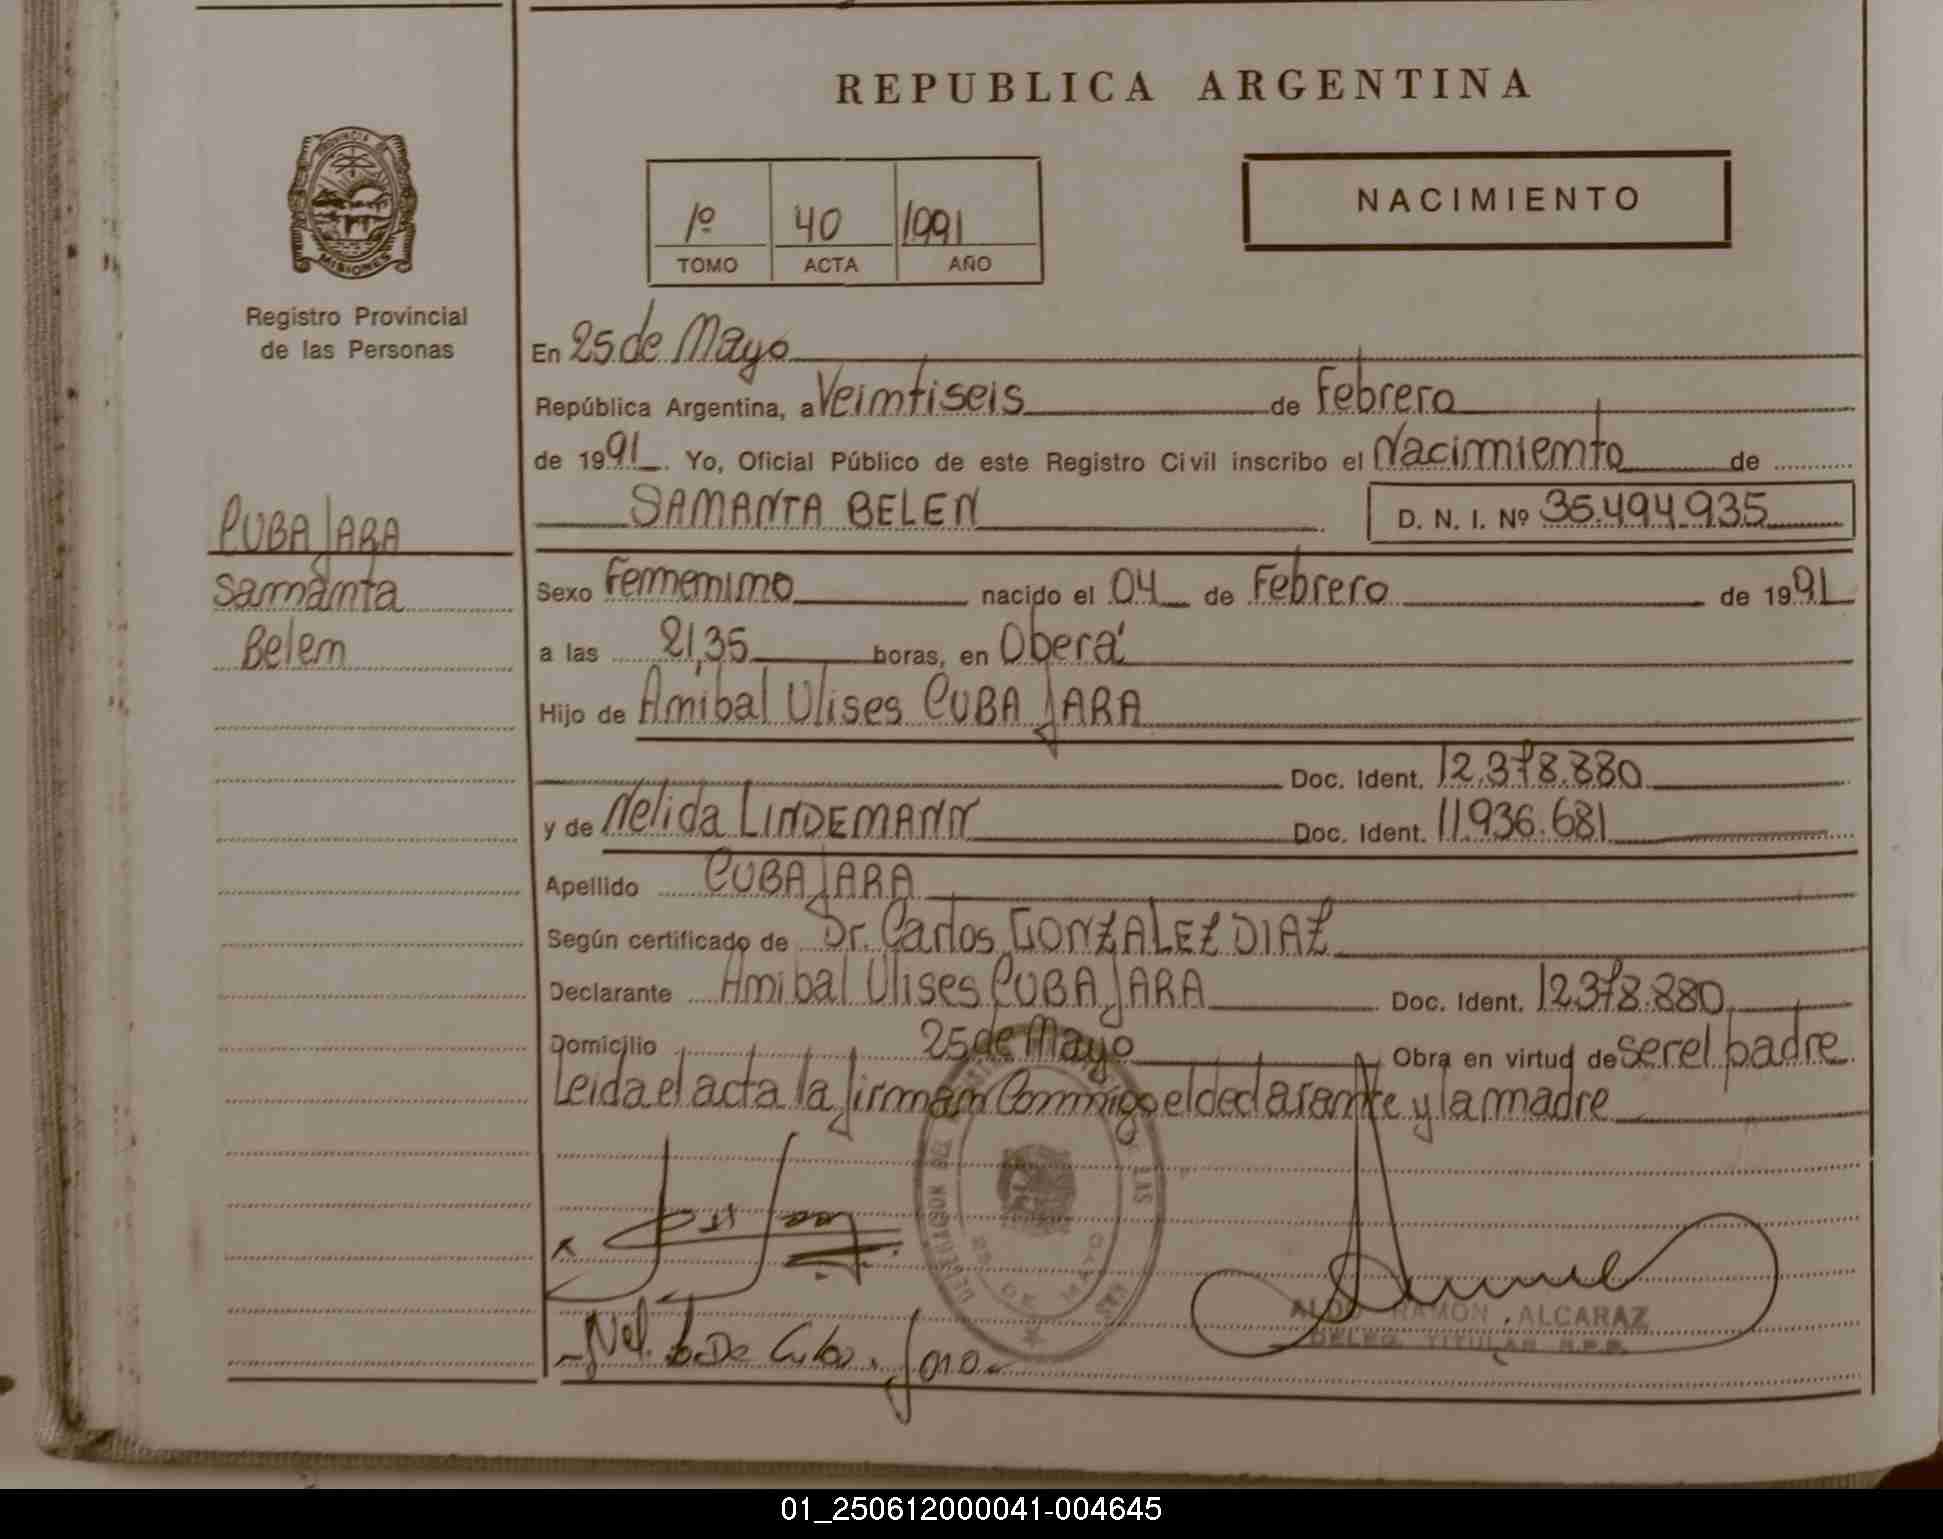 REPUBLICA ARGENTINA
PROVINCIA DE
MISIONES
Registro Provincial
de las Personas
1º 40 1991
TOMO ACTA AÑO
NACIMIENTO
En 25 de Mayo
República Argentina, a Veimtiseis de Febrero
de 1991. Yo, Oficial Público de este Registro Civil inscribo el Nacimiemto de
SAMANTA BELEN D. N. I. Nº 35.494.935
CUBA JARA
Samamta
Belem
Sexo Femenimo nacido el 04 de Febrero de 1991
a las 21,35 horas, en Oberá
Hijo de Amibal Ulises CUBA JARA
Doc. Ident. 12.378.880
y de Nelida LINDEMANN Doc. Ident. 11.936.681
Apellido CUBA JARA
Según certificado de Dr. Carlos GONZALEZ DIAZ
Declarante Amibal Ulises CUBA JARA Doc. Ident. 12.378.880
Domicilio 25 de Mayo Obra en virtud de ser el padre
Leida el acta la firmam Commigo el declaramte y la madre
DELEGACION DEL DE LAS
25 DE MAYO
Nel. L. De Cuba Jara
ALDO RAMON ALCARAZ
DELEG. TITULAR R.P.P.
01_250612000041-004645